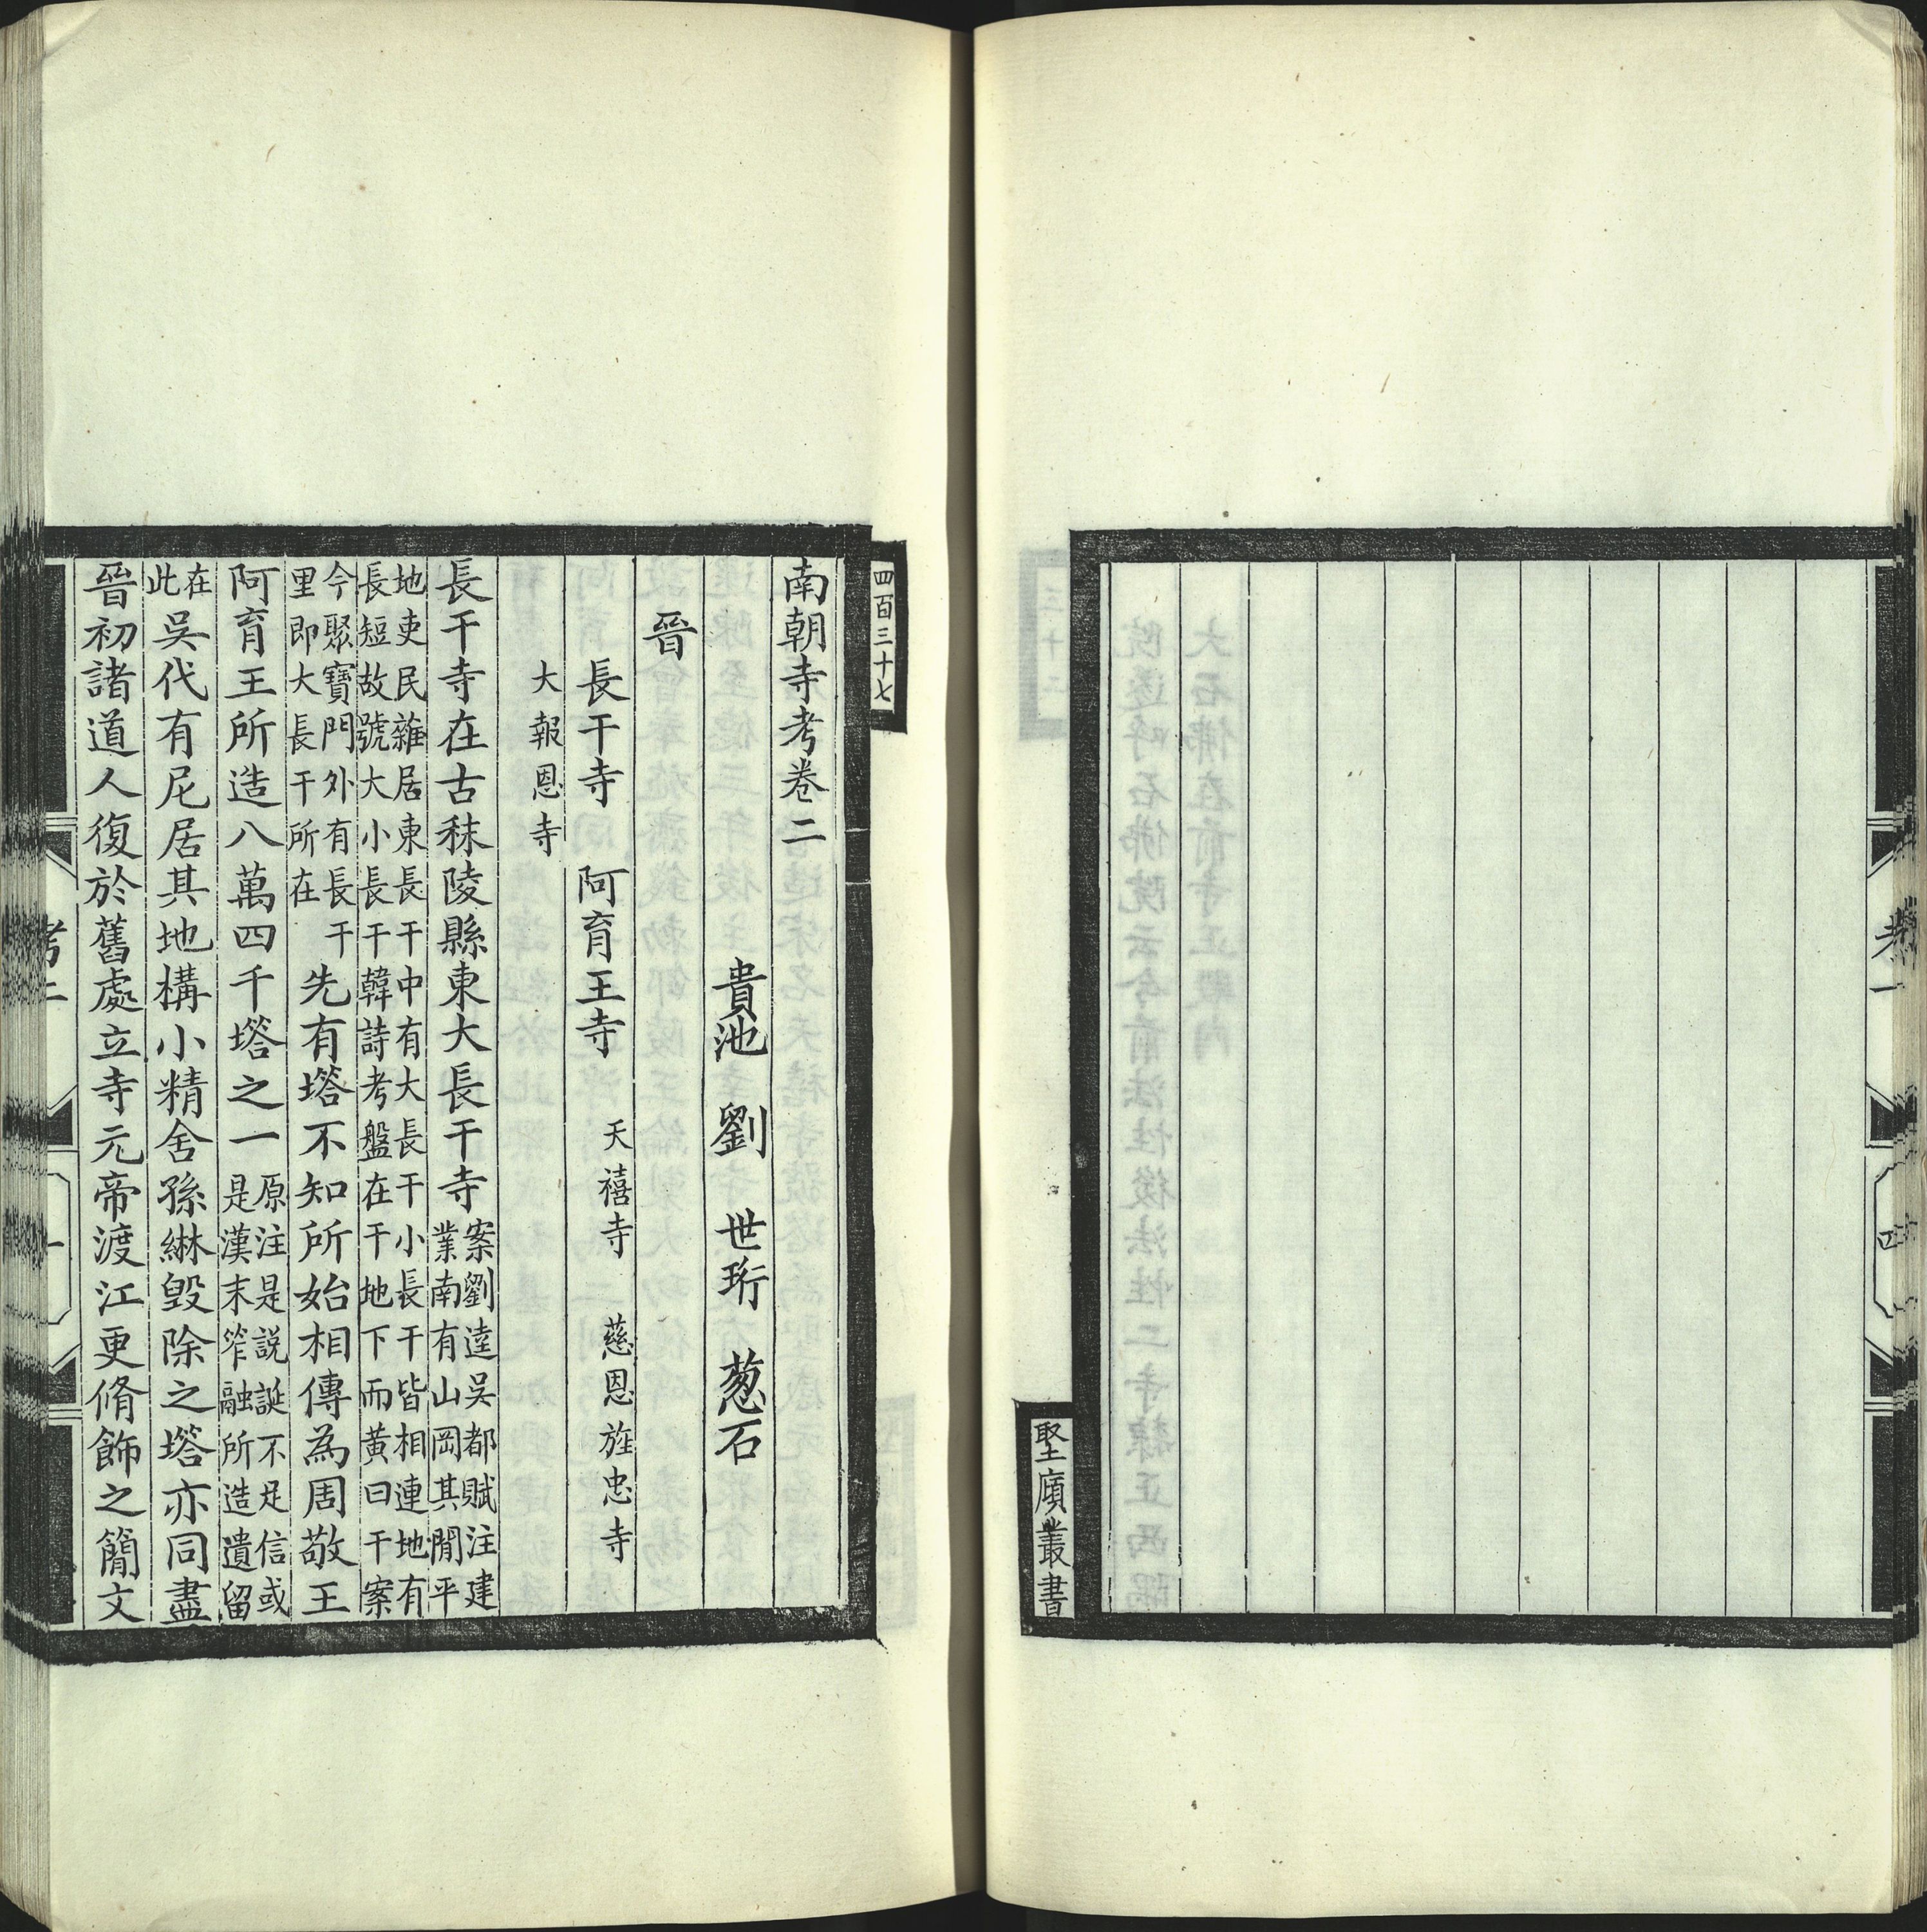 考一
四
埾廎叢書
四百三十七
南朝寺考卷二
貴池 劉 世珩 葱石
晉
長干寺 阿育王寺 天禧寺 慈恩旌忠寺
大報恩寺
長干寺在古秣陵縣東大長干寺案劉逵吳都賦注建業南有山岡其閒平
地吏民雜居東長干中有大長干小長干皆相連地有長短故號大小長干韓詩考盤在干地下而黃曰干案
今聚寶門外有長干里即大長干所在先有塔不知所始相傳為周敬王
阿育王所造八萬四千塔之一原注是説誕不足信或是漢末笮融所造遺留
在此吳代有尼居其地構小精舍孫綝毀除之塔亦同盡
晉初諸道人復於舊處立寺元帝渡江更脩飾之簡文
考二
一